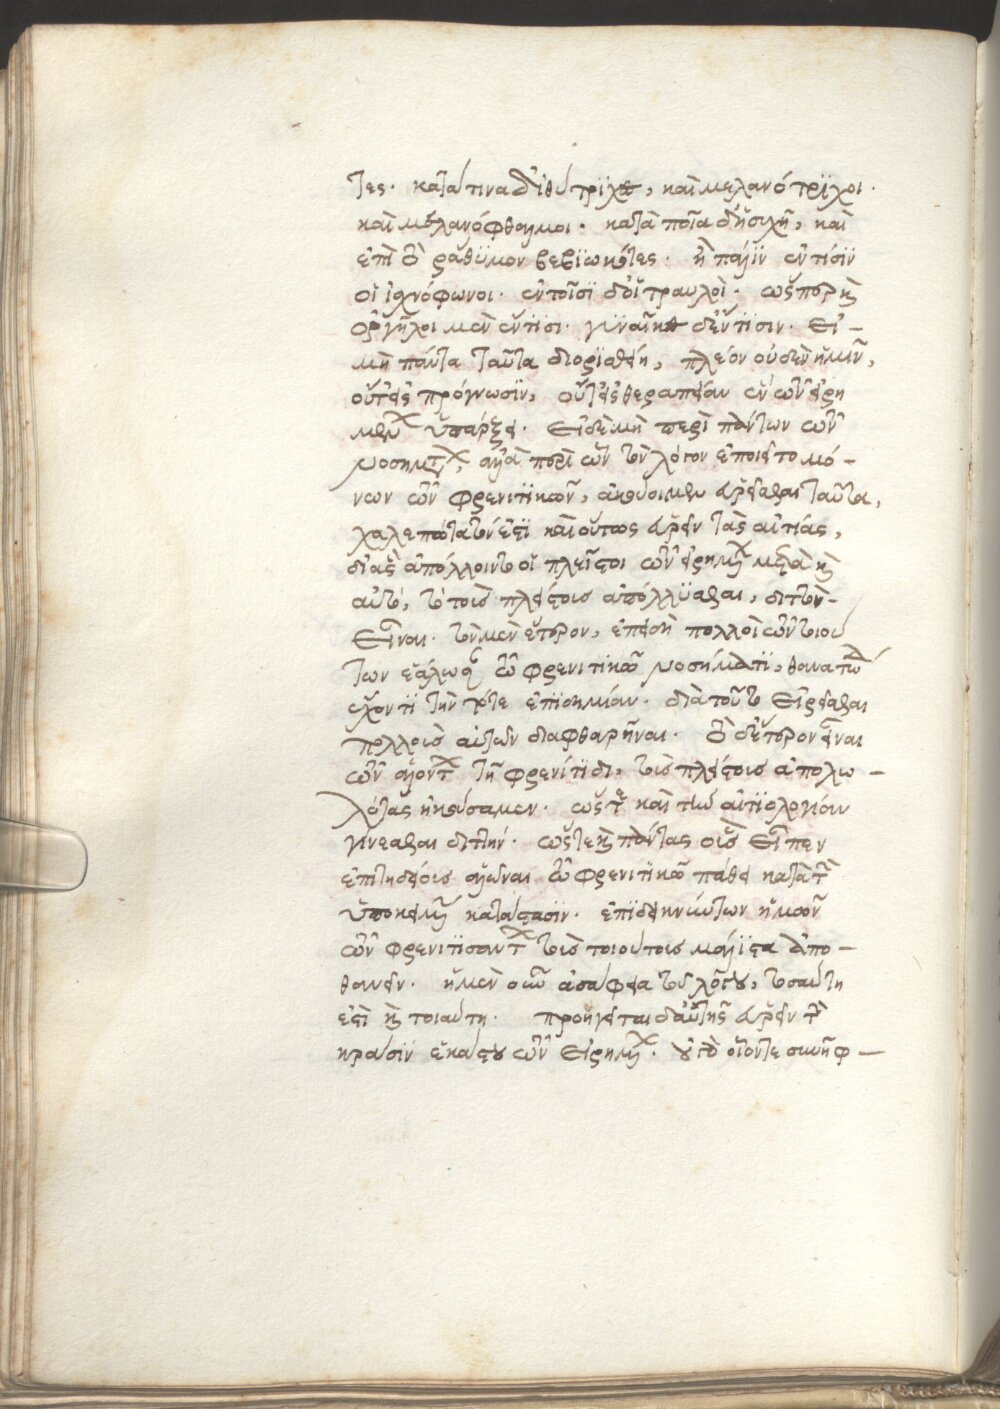 τες· κατά τινα δ' ἰθύτριχες, καὶ μελανότριχοι·
καὶ μελανόφθαλμοι· κατὰ ποῖα δ' ἡσυχῆ, καὶ
ἐπὶ τὸ ῥάθυμον βεβιωκότες· ἢ πάλιν ἐν τίσιν
οἱ ἰσχνόφωνοι· ἐν τοῖσι δ' οἱ τραυλοί· ὥσπερ καὶ
ὀργίλοι μὲν ἔν τισι· γυναῖκες δ' ἔν τισιν· Εἰ
μὴ πάντα ταῦτα διορισθείη, πλέον οὐδὲν ἡμῖν,
οὔτ' εἰς πρόγνωσιν, οὔτ' εἰς θεραπείαν ἐκ τῶν εἰρη
μένων ὑπάρξει· Εἰ δὲ μὴ περὶ πάντων τῶν
νοσημάτων, ἀλλὰ περὶ τῶν τὸν λόγον ἐποιεῖτο μό
νων τῶν φρενιτικῶν, ἀκούοιμεν εἰρῆσθαι ταῦτα,
χαλεπώτατόν ἐστι καὶ οὕτως εὑρεῖν τὰς αἰτίας,
δι' ἃς ἀπόλλοιντο οἱ πλεῖστοι τῶν εἰρημένων μετὰ καὶ
αὐτό, τὸ τοὺς πλείστους ἀπόλλυσθαι, διττὸν
Εἶναι· τὸ μὲν ἕτερον, ἐπειδὴ πολλοὶ τῶν τοιού
των ἑάλωσαν τῷ φρενιτικῷ νοσήματι, θανατώδει
ἔχοντι τὴν τότε ἐπιδημίαν· διὰ τοῦτο Εἰρῆσθαι
πολλοὺς αὐτῶν διαφθαρῆναι· τὸ δ' ἕτερον εἶναι
τῶν ἁλόντων τῇ φρενίτιδι, τοὺς πλείστους ἀπολω
λότας ἠκούσαμεν· ὥστε καὶ τὴν αἰτιολογίαν
γίνεσθαι διττήν· ὥστε καὶ πάντας οὓς Εἶπεν
ἐπιτηδείους ἁλῶναι τῷ φρενιτικῷ πάθει κατὰ τὴν
ὑποκειμένην κατάστασιν· ἐπιδεικνύντων ἡμῶν
τῶν φρενιτισάντων τοὺς τοιούτους μάλιστα ἀπο
θανεῖν· ἡ μὲν οὖν ἀσάφεια τοῦ λόγου, τοσαύτη
ἐστὶ καὶ τοιαύτη· προηγεῖται δ' αὐτῆς εὑρεῖν τὴν
κρᾶσιν ἑκάστου τῶν Εἰρημένων· οὐ τὸ οἷόν τε συνῆφ